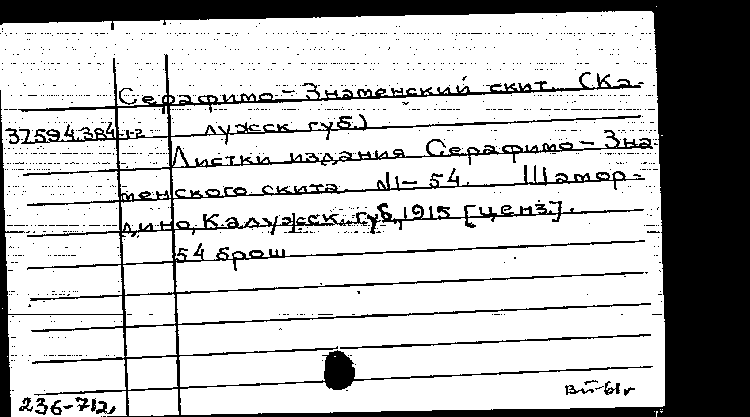 Серафимо-Знаменский скит. (Ка-
37.59.4.384-1-2 лужск губ.)
Листки издания Серафимо-Зна-
менского скита №1-54. Шамор-
дино, Калужск. губ., 1915 [ценз.].
54 брош
236-712